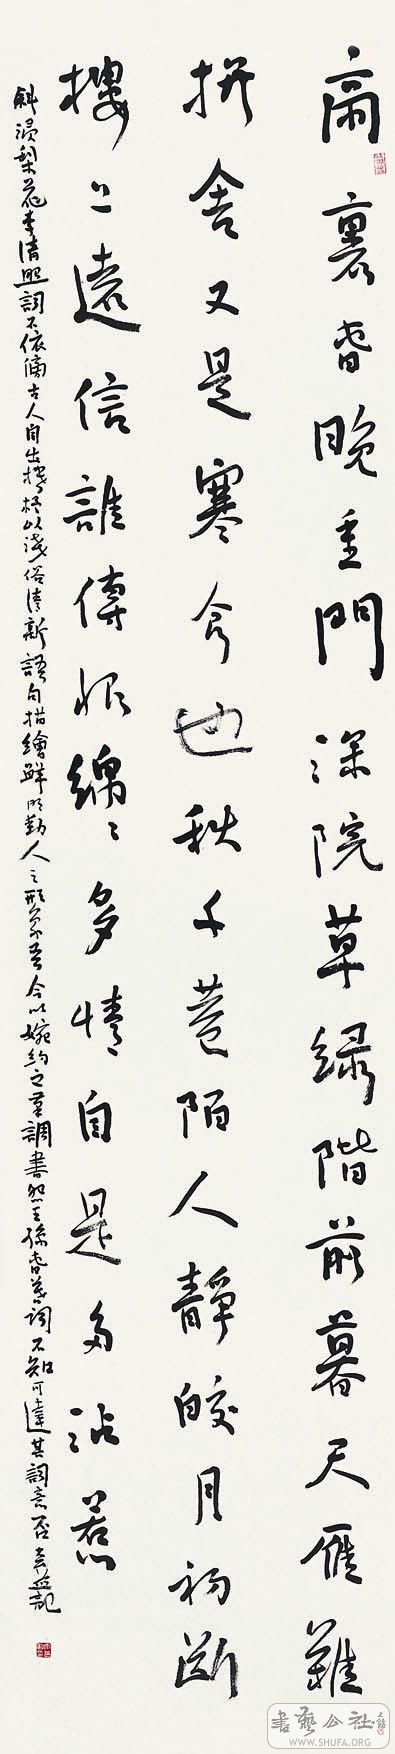 帝裏春晚重門深院草綠階前暮天雁難
拚舍又是寒食也秋千巷陌人靜皎月初斷
樓上遠信誰傳恨綿綿多情自是多沾惹
斜浸梨花李清照詞不依傍古人自出機杼以淺俗清新語句描繪鮮明動人之形象吾今以婉約之調書怨王孫春暮詞不知可達其詞意否記
書藝公社
WWW.SHUFA.ORG